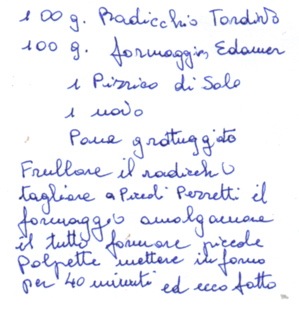 100 g. Radicchio Tardivo
100 g. formaggio, Edamer
1 Pizzico di Sale
1 uovo
Pane grattuggiato
Frullare il radicchio
tagliare a Piccoli Pezzetti il
formaggio amalgamare
il tutto formare piccole
Polpette mettere in forno
per 40 minuti ed ecco fatto